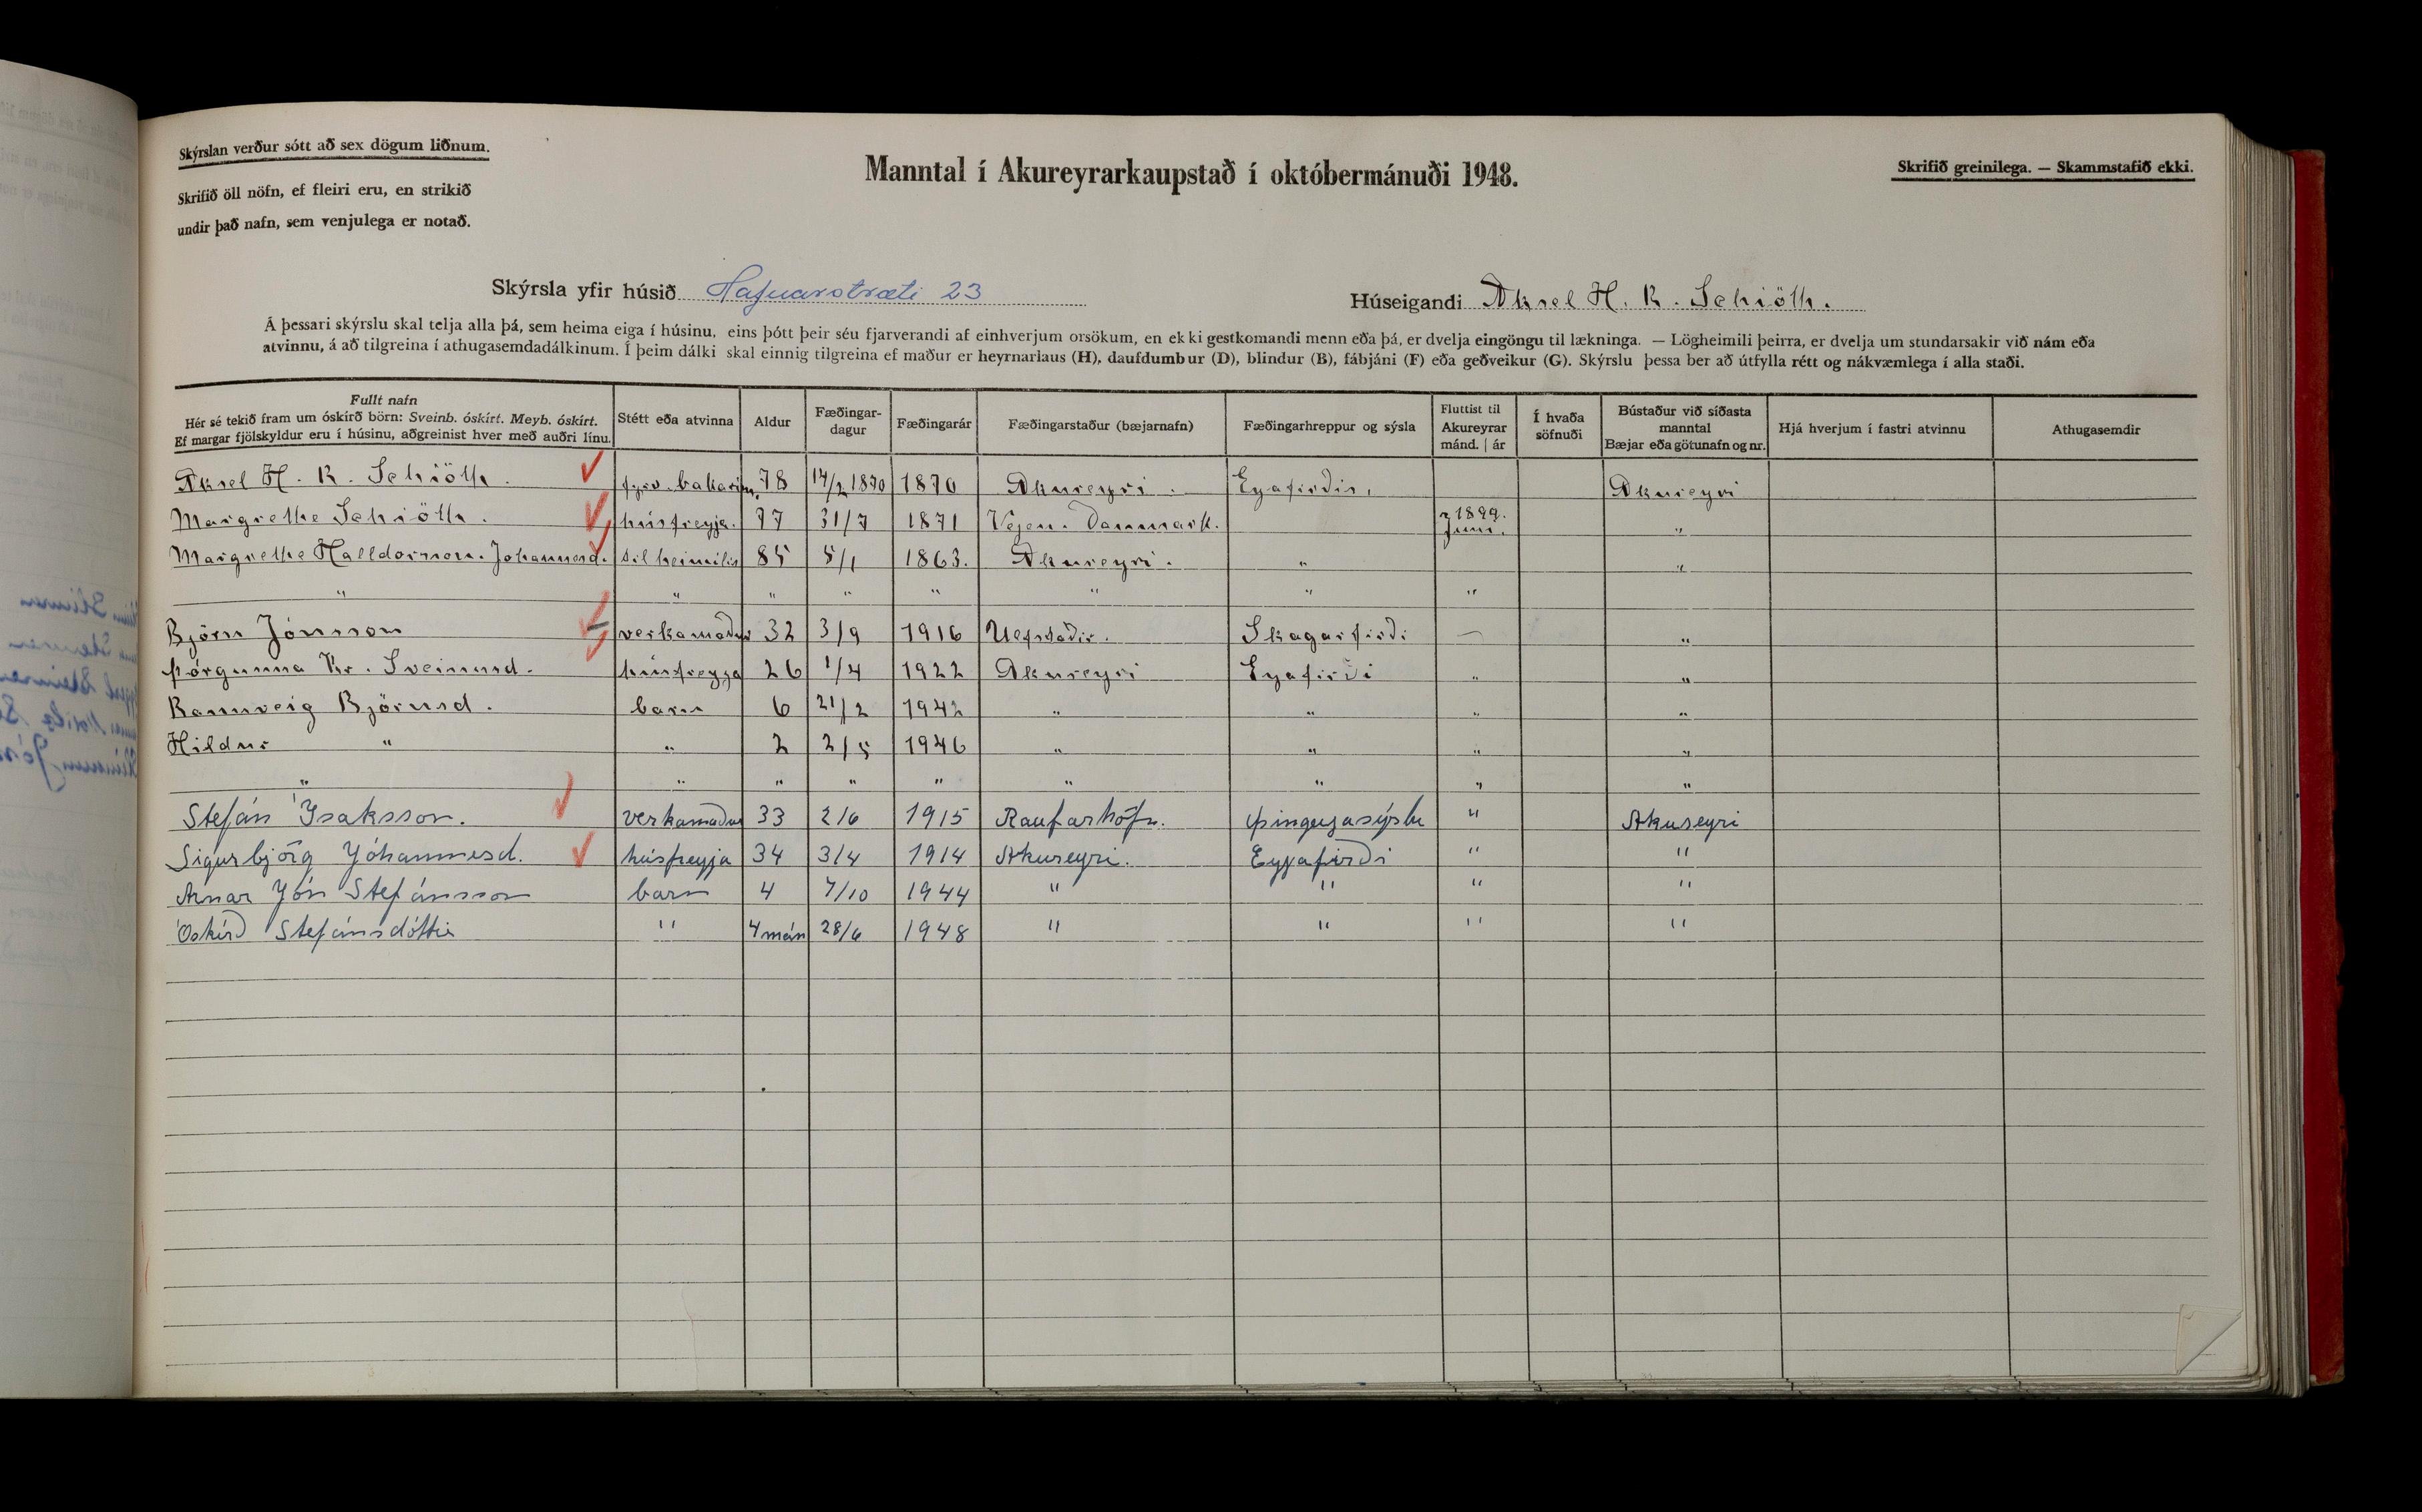 Skýrslan verður sótt að sex dögum liðnum.
Skrifið öll nöfn, ef fleiri eru, en strikið
undir það nafn, sem venjulega er notað.
Manntal í Akureyrarkaupstað í októbermánuði 1948.
Skrifið greinilega. — Skammstafið ekki.
Skýrsla yfir húsið Hafnarstræti 23
Húseigandi Aksel H. K. Schiöth.
Á þessari skýrslu skal telja alla þá, sem heima eiga í húsinu, eins þótt þeir séu fjarverandi af einhverjum orsökum, en ekki gestkomandi menn eða þá, er dvelja eingöngu til lækninga. — Lögheimili þeirra, er dvelja um stundarsakir við nám eða
atvinnu, á að tilgreina í athugasemdadálkinum. Í þeim dálki skal einnig tilgreina ef maður er heyrnarlaus (H), daufdumbur (D), blindur (B), fábjáni (F) eða geðveikur (G). Skýrslu þessa ber að útfylla rétt og nákvæmlega í alla staði.
Fullt nafn
Hér sé tekið fram um óskírð börn: Sveinb. óskírt. Meyb. óskírt.
Ef margar fjölskyldur eru í húsinu, aðgreinist hver með auðri línu.
Stétt eða atvinna
Aldur
Fæðingar-
dagur
Fæðingarár
Fæðingarstaður (bæjarnafn)
Fæðingarhreppur og sýsla
Fluttist til
Akureyrar
mánd. | ár
Í hvaða
söfnuði
Bústaður við síðasta
manntal
Bæjar eða götunafn og nr.
Hjá hverjum í fastri atvinnu
Athugasemdir
Aksel H. K. Schiöth. fyrv. bakarim. 78 14/2 1870 1870 Akureyri. Eyafirðir, Akureyri
Margrethe Schiöth. húsfreyja. 77 31/7 1871 Vejen. Danmark. 1899. Juni. "
Margrethe Halldorsson. Johannesd. til heimilis 85 5/1 1863. Akureyri. " "
" " " " " " " "
Björn Jónsson verkamaður 32 3/9 1916 Skagarfirði — "
Þórgunna Kr. Sveinnd. húsfreyja 26 1/4 1922 Akureyri Eyafirði " "
Rannveig Björnsd. barn 6 21/2 1942 " " " "
Hildur " " 2 2/5 1946 " " " "
" " " " " " " " "
Stefán Ísaksson. verkamaður 33 2/6 1915 Raufarhöfn. Þingeyjasýslu " Akureyri
Sigurbjörg Jóhannesd. húsfreyja 34 3/4 1914 Akureyri. Eyjafirði " "
Arnar Jón Stefánsson barn 4 7/10 1944 " " " "
Óskírð Stefánsdóttir " 4 mán 28/6 1948 " " " "